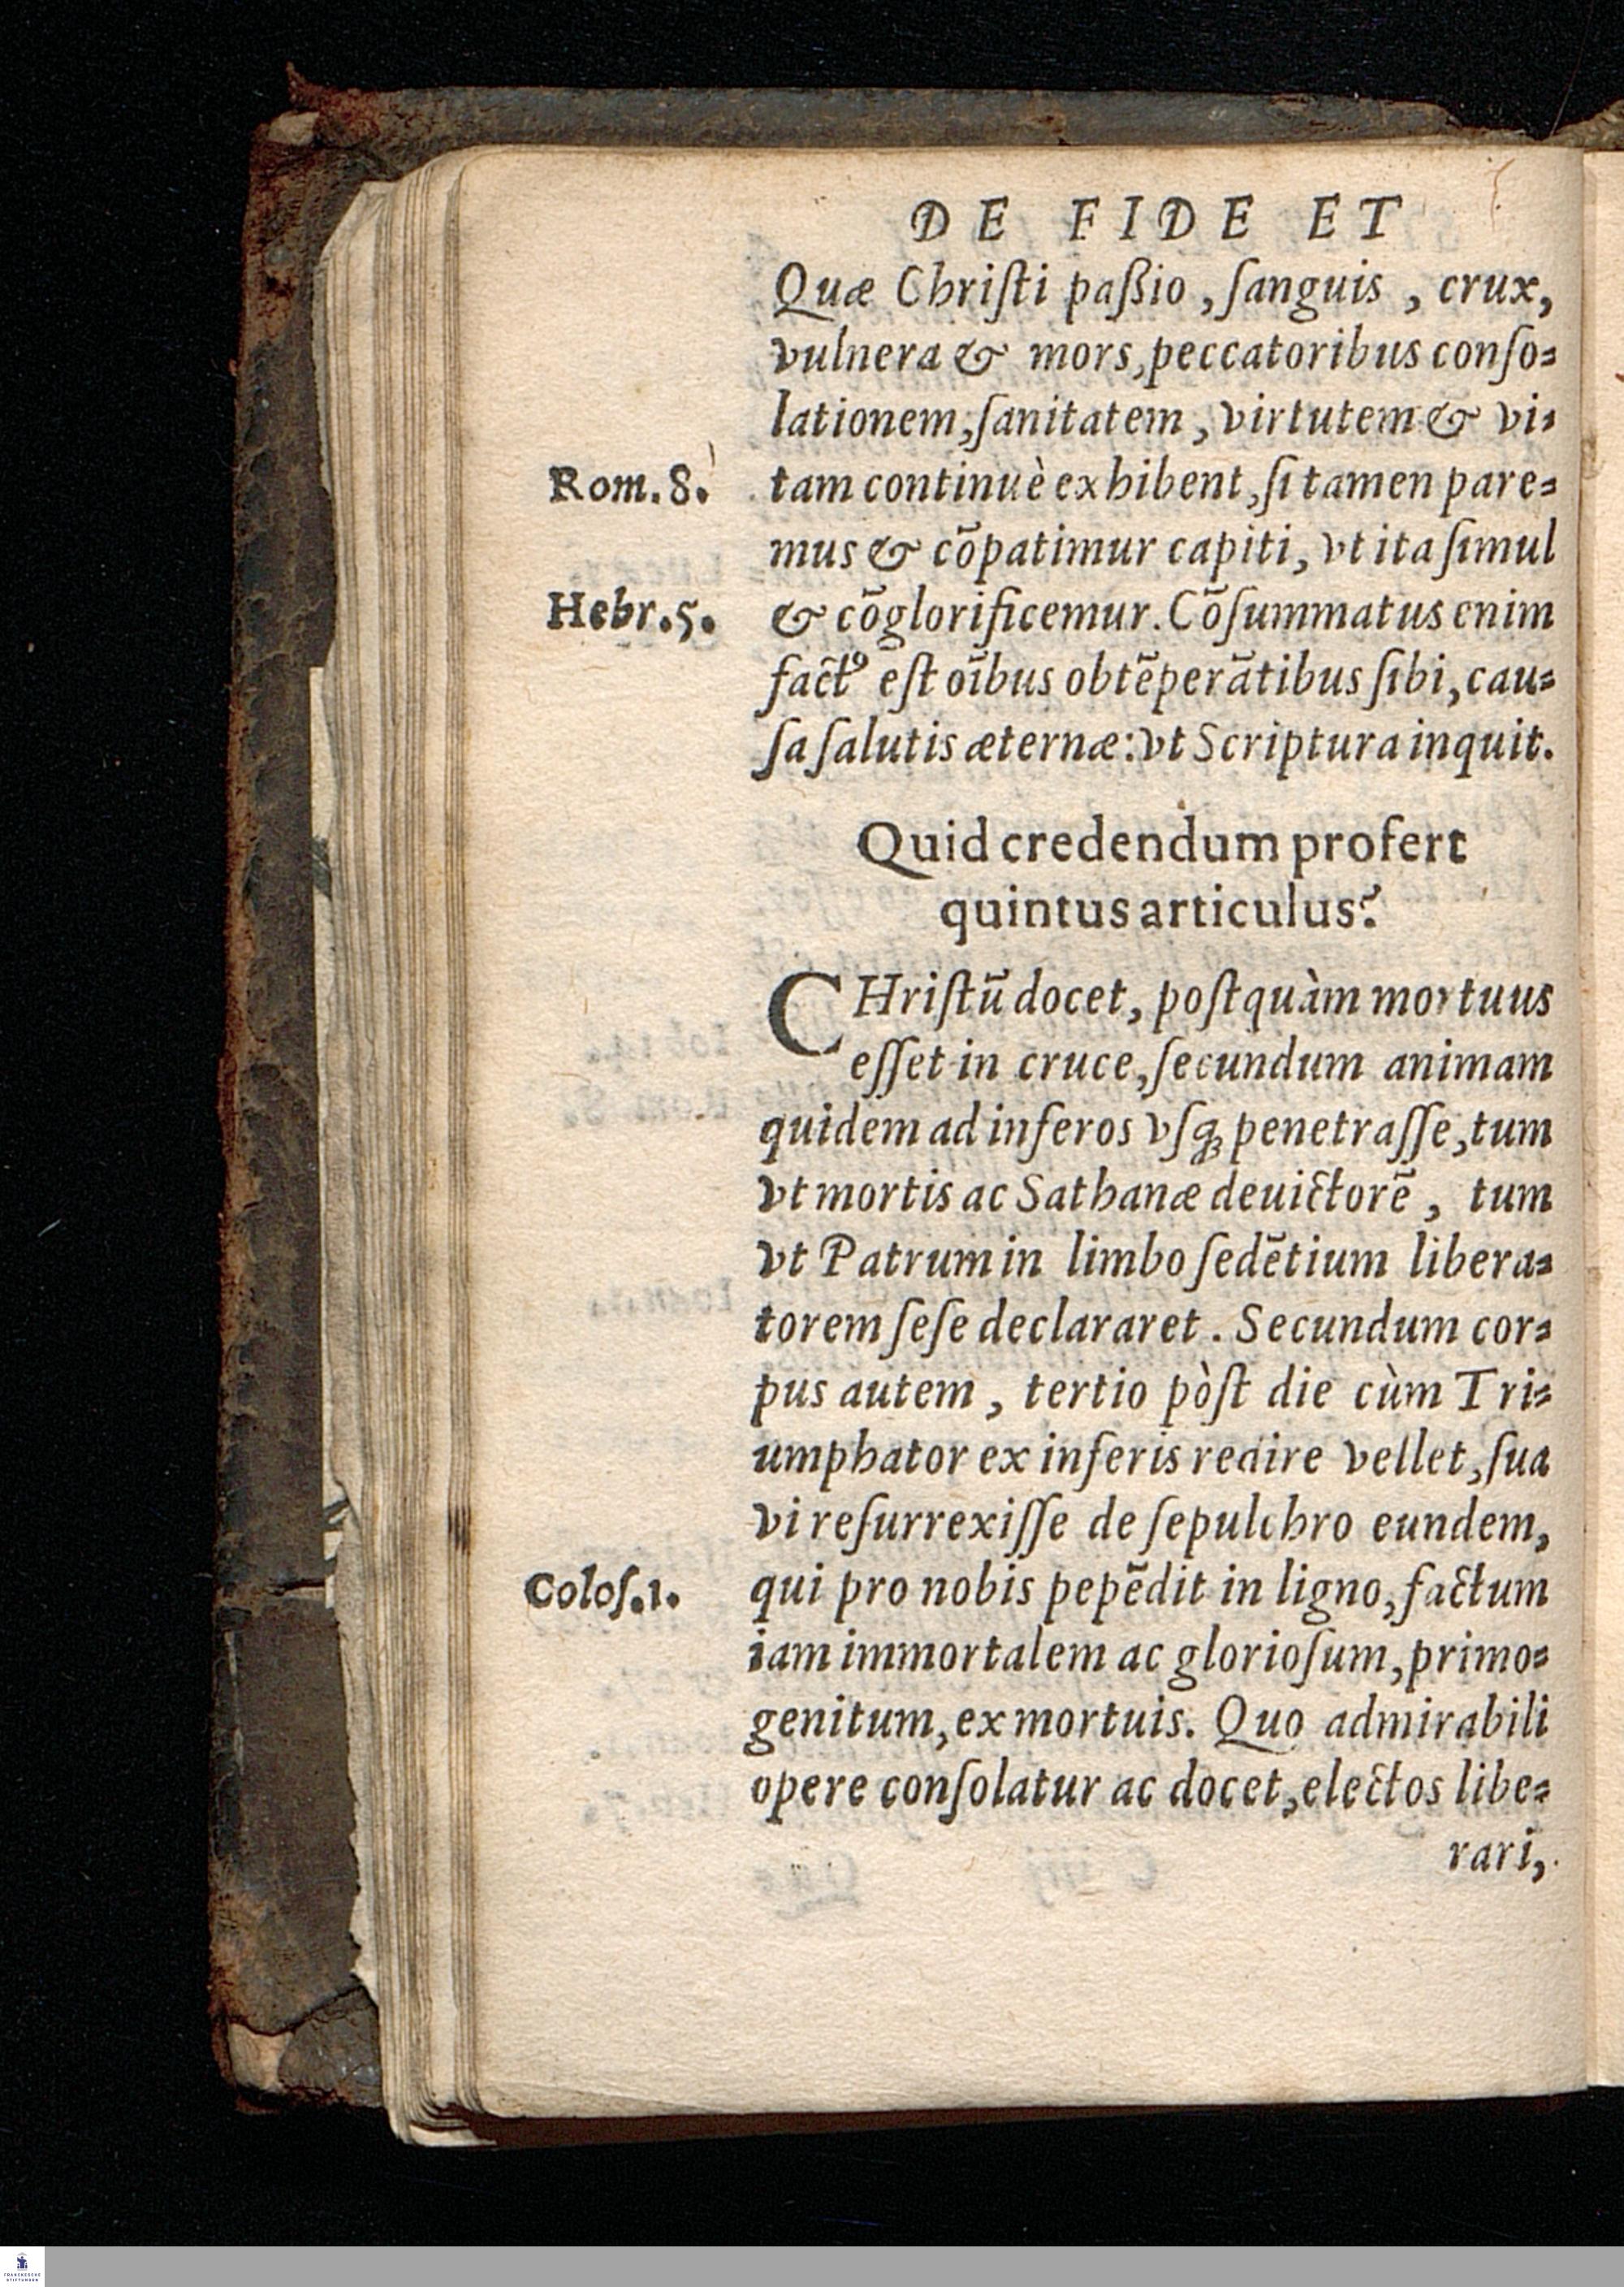 DE FIDE ET
Quæ Chriſti paßio, ſanguis, crux,
vulnera & mors, peccatoribus conſo⸗
lationem, ſanitatem, virtutem & vi⸗
Rom. 8.
tam continuè exhibent, ſi tamen pare⸗
mus & cōpatimur capiti, vt ita ſimul
Hebr. 5.
& cōglorificemur. Cōſummatus enim
factꝰ eſt oībus obtēperātibus ſibi, cau⸗
ſa ſalutis æternæ: vt Scriptura inquit.
Quid credendum profert
quintus articulus?
CHriſtū docet, poſtquàm mortuus
eſſet in cruce, ſecundum animam
quidem ad inferos vſqꝫ penetraſſe, tum
vt mortis ac Sathanæ deuictorē, tum
vt Patrum in limbo ſedētium libera⸗
torem ſeſe declararet. Secundum cor⸗
pus autem, tertio pòſt die cùm Tri⸗
umphator ex inferis redire vellet, ſua
vi reſurrexiſſe de ſepulchro eundem,
Coloſ. 1.
qui pro nobis pepēdit in ligno, factum
iam immortalem ac glorioſum, primo⸗
genitum, ex mortuis. Quo admirabili
opere conſolatur ac docet, electos libe⸗
rari,
FRANCKESCHE
STIFTUNGEN